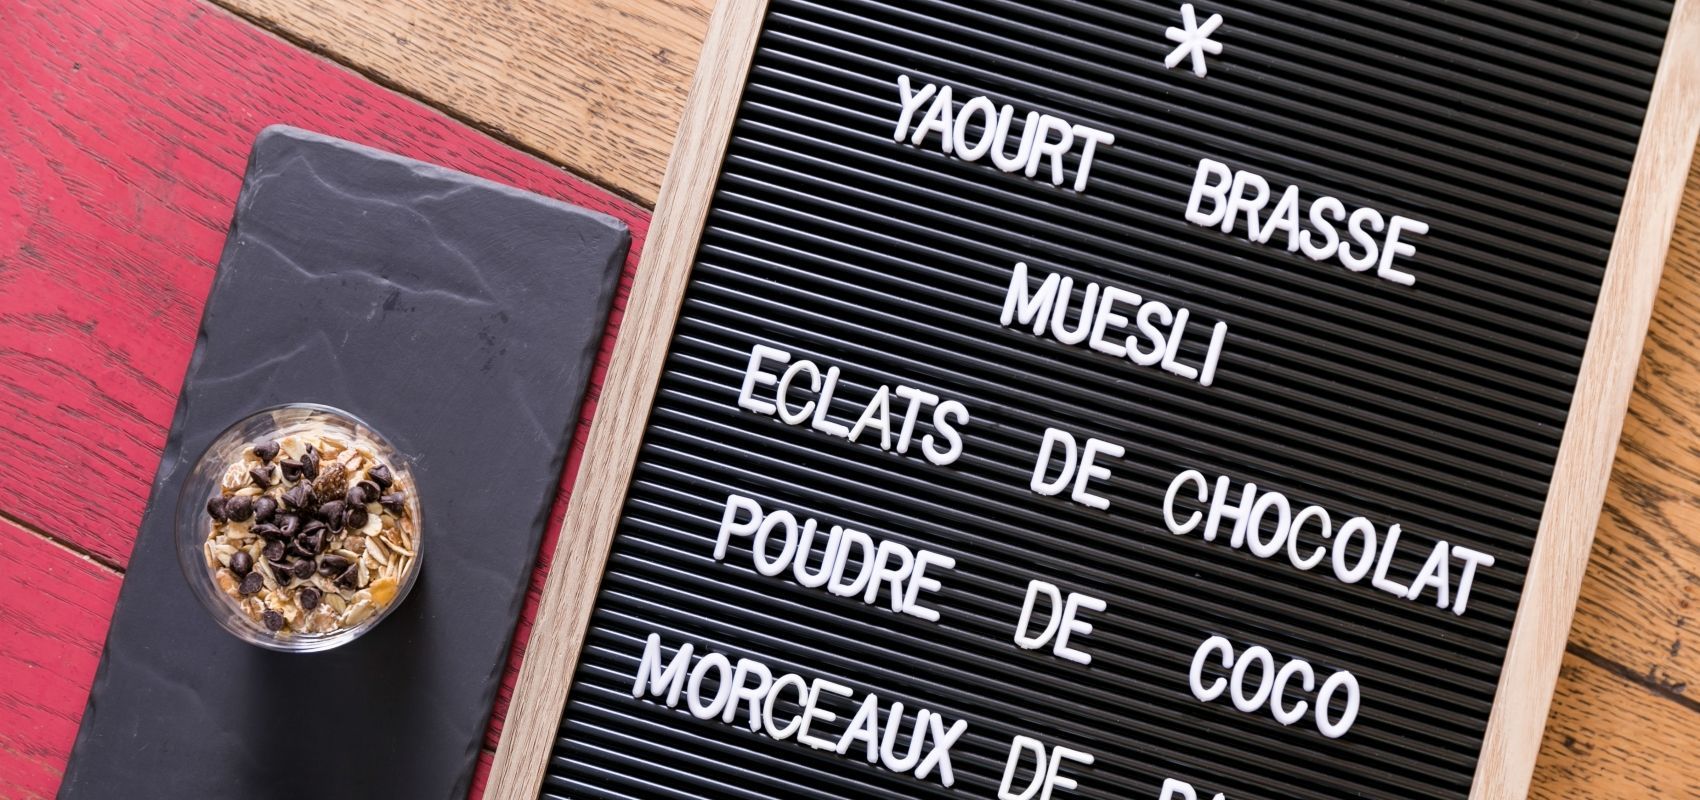 *
YAOURT BRASSE
MUESLI
ECLATS DE CHOCOLAT
POUDRE DE COCO
MORCEAUX DE